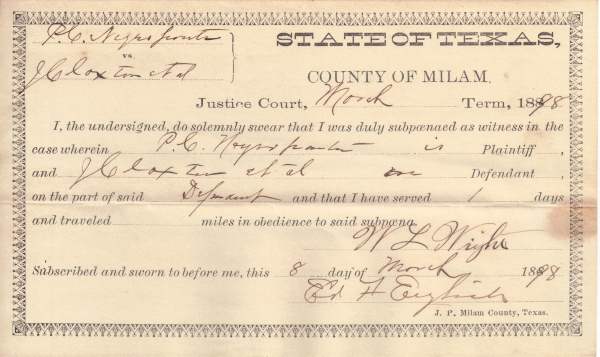 P.C. Negrs
vs.
J Cloxton et al
STATE OF TEXAS,
COUNTY OF MILAM.
Justice Court, March Term, 1898
I, the undersigned, do solemnly swear that I was duly subpœnaed as witness in the
case wherein P. C. is Plaintiff,
and J Cloxton et al are Defendant,
on the part of said Defendant and that I have served 1 days
and traveled miles in obedience to said subpœna.
W L Wright
Subscribed and sworn to before me, this 8 day of March 1898
Ed A English
J. P. Milam County, Texas.